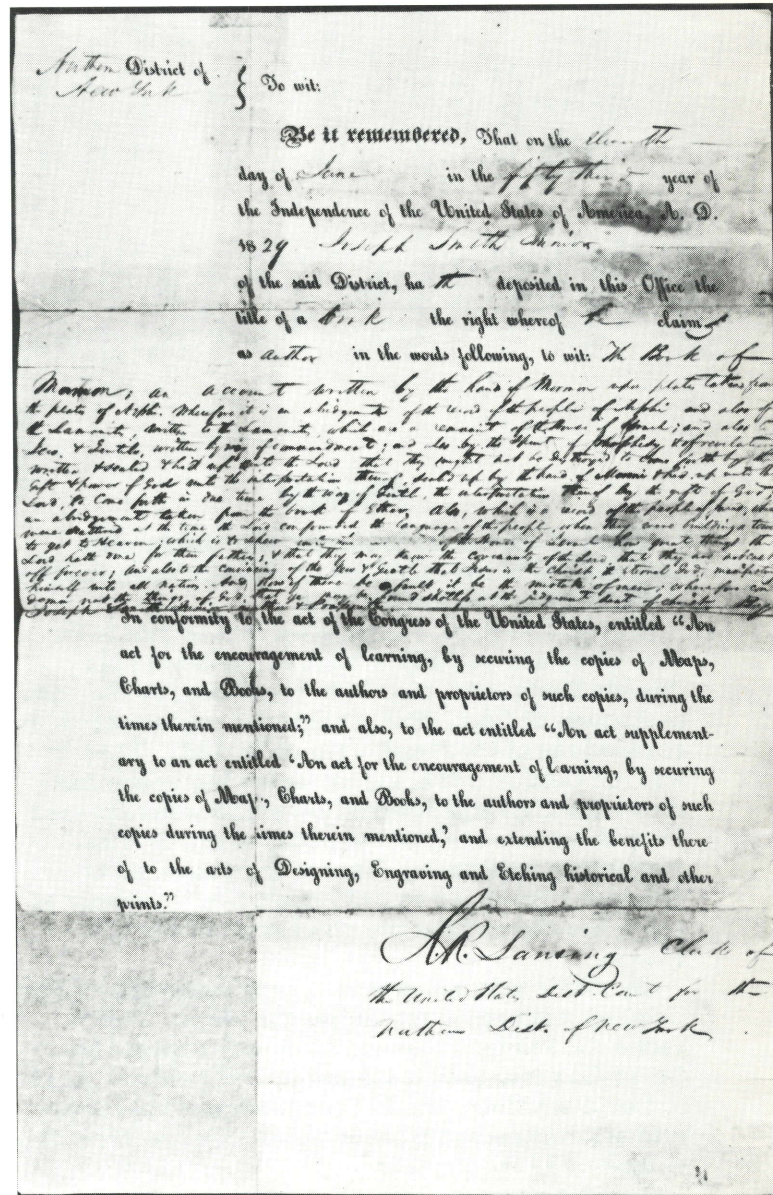 Northern District of
New York
To wit:
Be it remembered, That on the eleventh
day of June in the fifty third year of
the Independence of the United States of America, A. D.
1829 Joseph Smith Junior
of the said District, ha th deposited in this Office the
title of a book the right whereof he claims
as author in the words following, to wit: The Book of
Mormon; an account written by the hand of Mormon upon plates taken from
the plates of Nephi. Wherefore it is an abridgment of the record of the people of Nephi and also of
the Lamanites, written to the Lamanites, which are a remnant of the House of Israel; and also to
Jews & Gentiles, written by way of commandment; and also by the Spirit of Prophesy & of revelation
written & sealed & hid up unto the Lord that they might not be destroyed to come forth by the
gift & power of God unto the interpretation thereof, sealed up by the hand of Moroni & hid up unto the
Lord, to come forth in due time by the way of Gentile, the interpretation thereof by the gift of God,
an abridgment taken from the book of Ether. Also, which is a record of the people of Jared, who
were scattered at the time the Lord confounded the language of the people when they were building a tower
to get to Heaven; which is to shew unto the remnant of the House of Israel how great things the
Lord hath done for their fathers; & that they may know the covenants of the Lord, that they are not cast
off forever; and also to the convincing of the Jew & Gentile that Jesus is the Christ, the eternal God, manifesting
himself unto all nations. And now if there be a fault, it be the mistake of men; wherefore con
demn not the things of God, that ye may be found spotless at the judgment seat of Christ. By
Joseph Smith
In conformity to the act of the Congress of the United States, entitled “An
act for the encouragement of learning, by securing the copies of Maps,
Charts, and Books, to the authors and proprietors of such copies, during the
times therein mentioned;” and also, to the act entitled “An act supplement-
ary to an act entitled ‘An act for the encouragement of learning, by securing
the copies of Maps, Charts, and Books, to the authors and proprietors of such
copies during the times therein mentioned,’ and extending the benefits there
of to the arts of Designing, Engraving and Etching historical and other
prints.”
R.R. Lansing Clerk of
the United States Dist. Court for the
northern Dist. of New York.